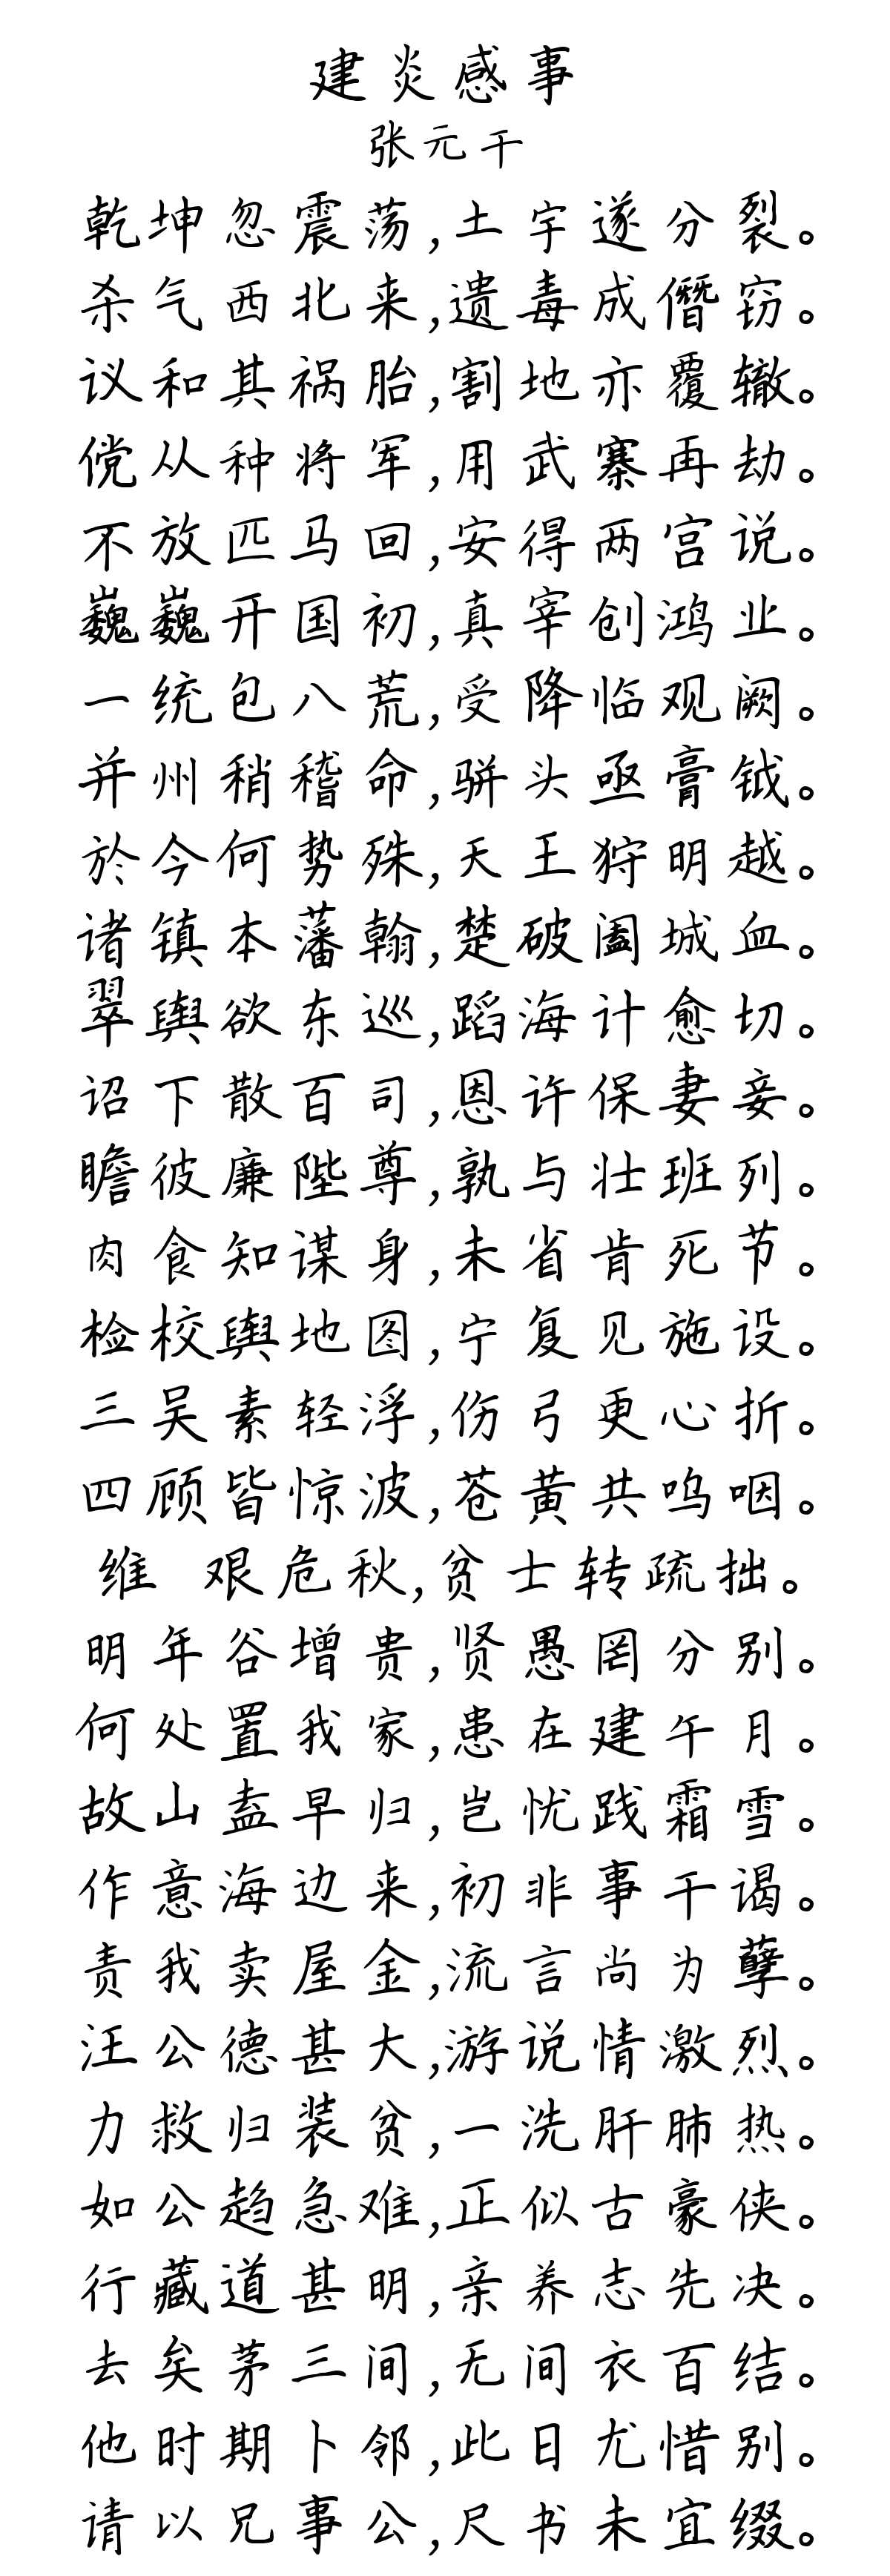 建炎感事
张元干
乾坤忽震荡,土宇遂分裂。
杀气西北来,遗毒成僭窃。
议和其祸胎,割地亦覆辙。
傥从种将军,用武寨再劫。
不放匹马回,安得两宫说。
巍巍开国初,真宰创鸿业。
一统包八荒,受降临观阙。
并州稍稽命,骈头亟膏钺。
於今何势殊,天王狩明越。
诸镇本藩翰,楚破阖城血。
翠舆欲东巡,蹈海计愈切。
诏下散百司,恩许保妻妾。
瞻彼廉陛尊,孰与壮班列。
肉食知谋身,未省肯死节。
检校舆地图,宁复见施设。
三吴素轻浮,伤弓更心折。
四顾皆惊波,苍黄共呜咽。
维 艰危秋,贫士转疏拙。
明年谷增贵,贤愚罔分别。
何处置我家,患在建午月。
故山盍早归,岂忧践霜雪。
作意海边来,初非事干谒。
责我卖屋金,流言尚为孽。
汪公德甚大,游说情激烈。
力救归装贫,一洗肝肺热。
如公趋急难,正似古豪侠。
行藏道甚明,亲养志先决。
去矣茅三间,无间衣百结。
他时期卜邻,此日尤惜别。
请以兄事公,尺书未宜缀。